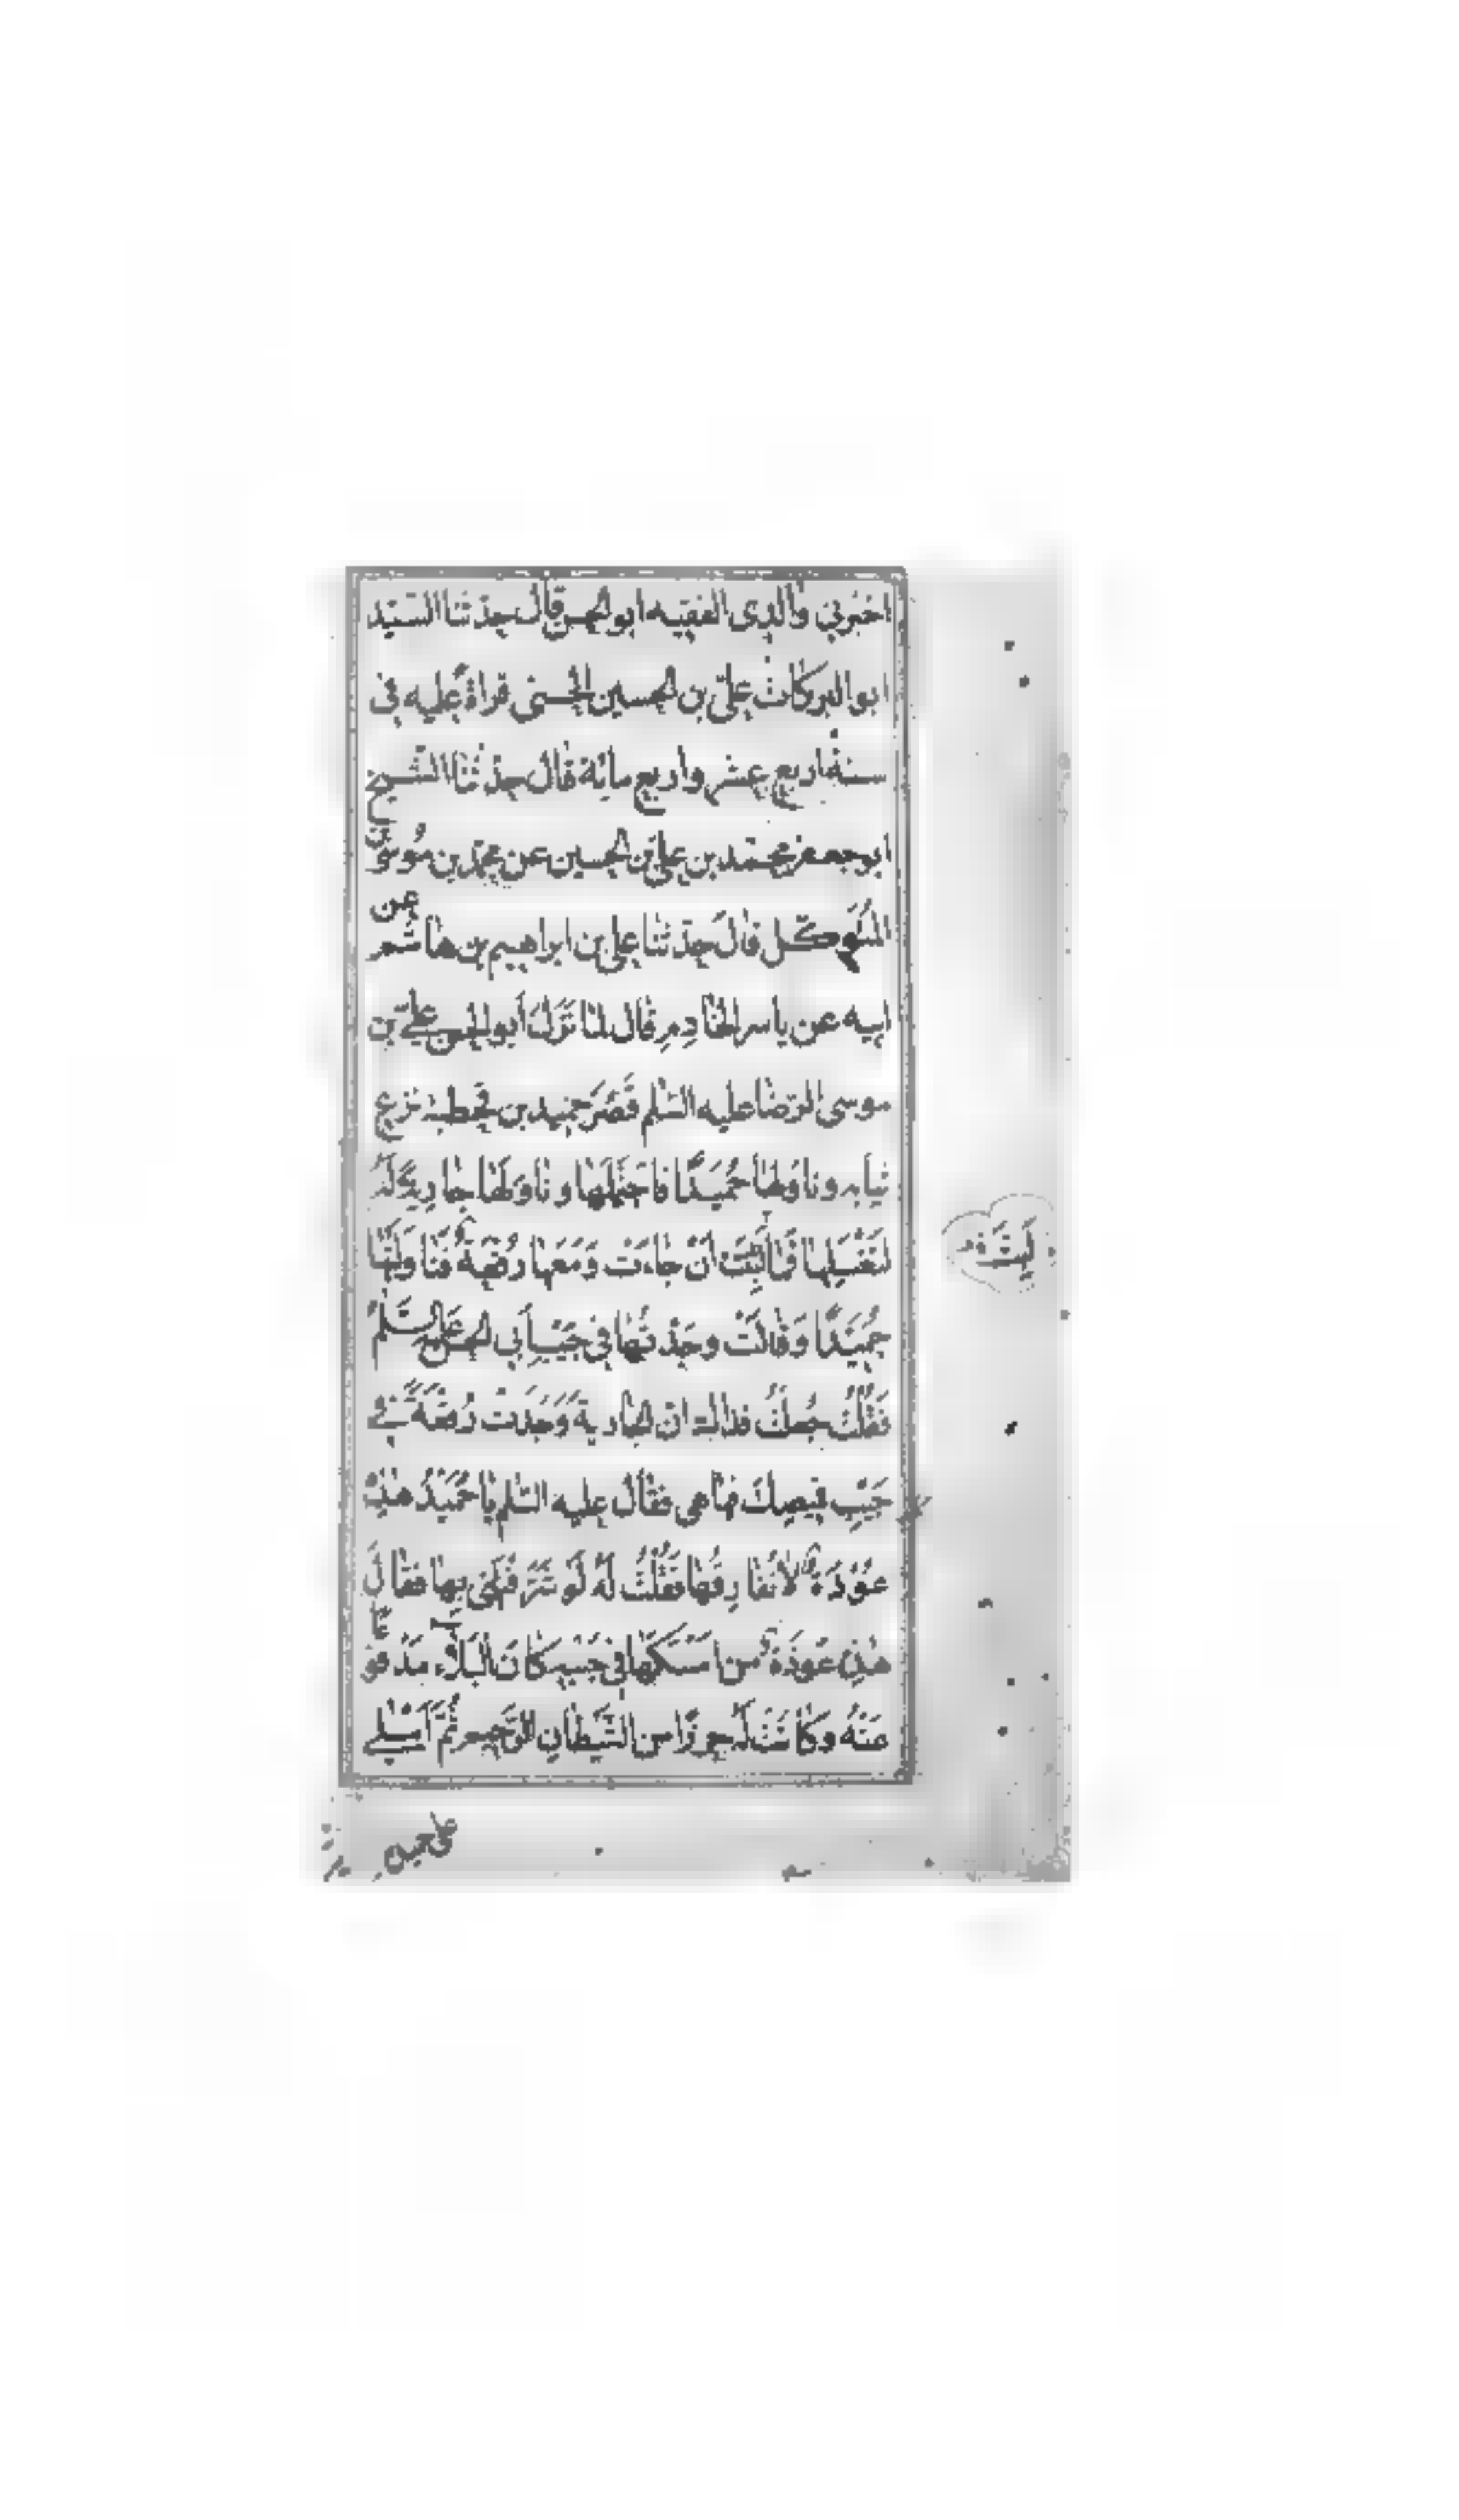 اخبرني والدي الفقيه ابو الحسن قال حدثنا السيد
ابو البركات علي بن الحسين الحسني قراءة عليه في
سنة اربع عشر واربع مائة قال حدثنا الشيخ
ابو جعفر محمد بن علي بن الحسين عن محمد بن موسى
المتوكل قال حدثنا علي بن ابراهيم بن هاشم عن
ابيه عن ياسر الخادم قال لما نزل ابو الحسن علي بن
موسى الرضا عليه السلم قصر حميد بن قحطبة نزع
ثيابه وناولها حميدا فاحتملها وناولها جارية له
لتغسلها فما لبثت ان جاءت ومعها رقعة فناولتها
حميدا وقالت وجدتها في جيب ابي الحسن عليه السلم
فقلت جعلت فداك ان الجارية وجدت رقعة في
جيب قميصك فما هي فقال عليه السلم يا حميد هذه
عوذة لا نفارقها فقلت له لو شرفتني بها فقال
هذه عوذة من امسكها في جيبه كان البلاء مدفوعا
عنه وكانت له حرزا من الشيطان الرجيم ثم املى
على حميد